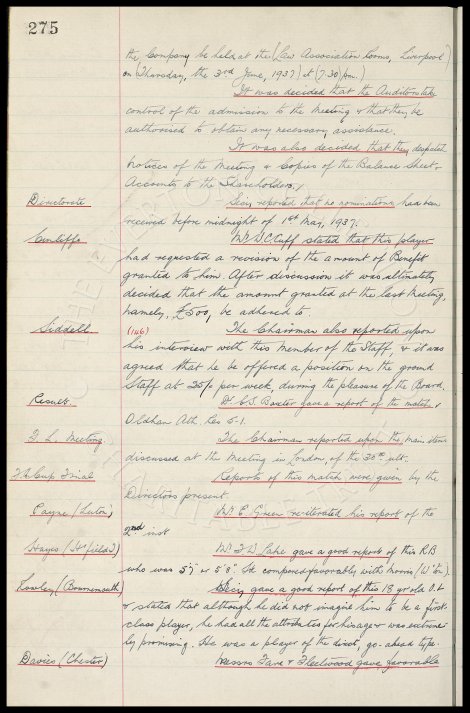 275
the Company be held at the (Law Association Rooms, Liverpool)
on (Thursday, the 3rd June, 1937) at (7.30 p.m.)
It was decided that the Auditors take
control of the admission to the Meeting & that they be
authorised to obtain any necessary assistance.
It was also decided that they despatch
Notices of the Meeting & Copies of the Balance Sheet &
Accounts to the Shareholders.
Directorate Secy reported that no nominations had been
received before midnight of 1st May, 1937.
Cunliffe Mr W.C. Cuff stated that this player
had requested a revision of the amount of Benefit
granted to him. After discussion it was ultimately
decided that the amount granted at the last Meeting,
namely, £500, be adhered to.
Liddell (146) The Chairman also reported upon
his interview with this Member of the Staff, & it was
agreed that he be offered a position on the ground
Staff at 35/- per week, during the pleasure of the Board.
Result. Dr C.S. Baxter gave a report of the match v
Oldham Ath Res 5-1.
F. L. Meeting The Chairman reported upon the main items
discussed at the Meeting in London of the 30th ult.
F.A. Cup Final Reports of this match were given by the
Directors present.
Payne (Luton) Mr E. Green re-iterated his report of the
2nd inst
Hayes (H'field T) Mr T.W. Lake gave a good report of this R B
who was 5'7" or 5'8". He compared favorably with Morris (W'ton).
Lowley (Bournemouth) Secy gave a good report of this 18 yr old O.L
& stated that although he did not imagine him to be a first-
class player, he had all the attributes for his age & was extreme
ly promising. He was a player of the direct, go-ahead type.
Davies (Chester) Messrs Tare & Fleetwood gave favorable